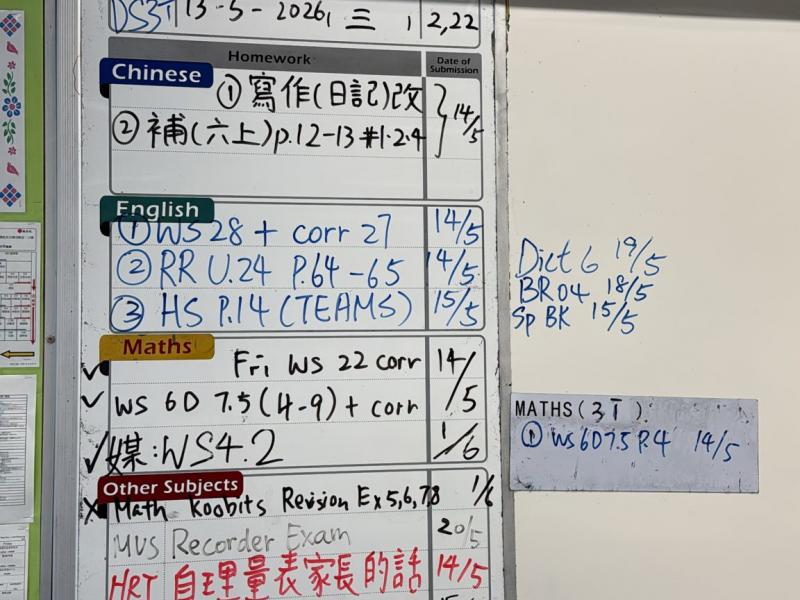 DS3T 13-5-2026, 三 , 2,22
Homework Date of Submission
Chinese
① 寫作(日記)改
② 補(六上)p.12-13 #1.2.4 } 14/5
English
① WS 28 + corr 27 14/5
② RR U.24 P.64-65 14/5
③ HS P.14 (TEAMS) 15/5
Dict 6 19/5
BR04 18/5
Sp BK 15/5
Maths
✓ Fri WS 22 corr 14/5
✓ WS 6D 7.5(4-9)+ corr
✓ 媒:WS4.2 1/6
MATHS(3T)
① WS 6D7.5 P.4 14/5
Other Subjects
x Math Koobits Revision Ex 5,6,7,8 1/6
MUS Recorder Exam 20/5
HRT 自理量表家長的話 14/5